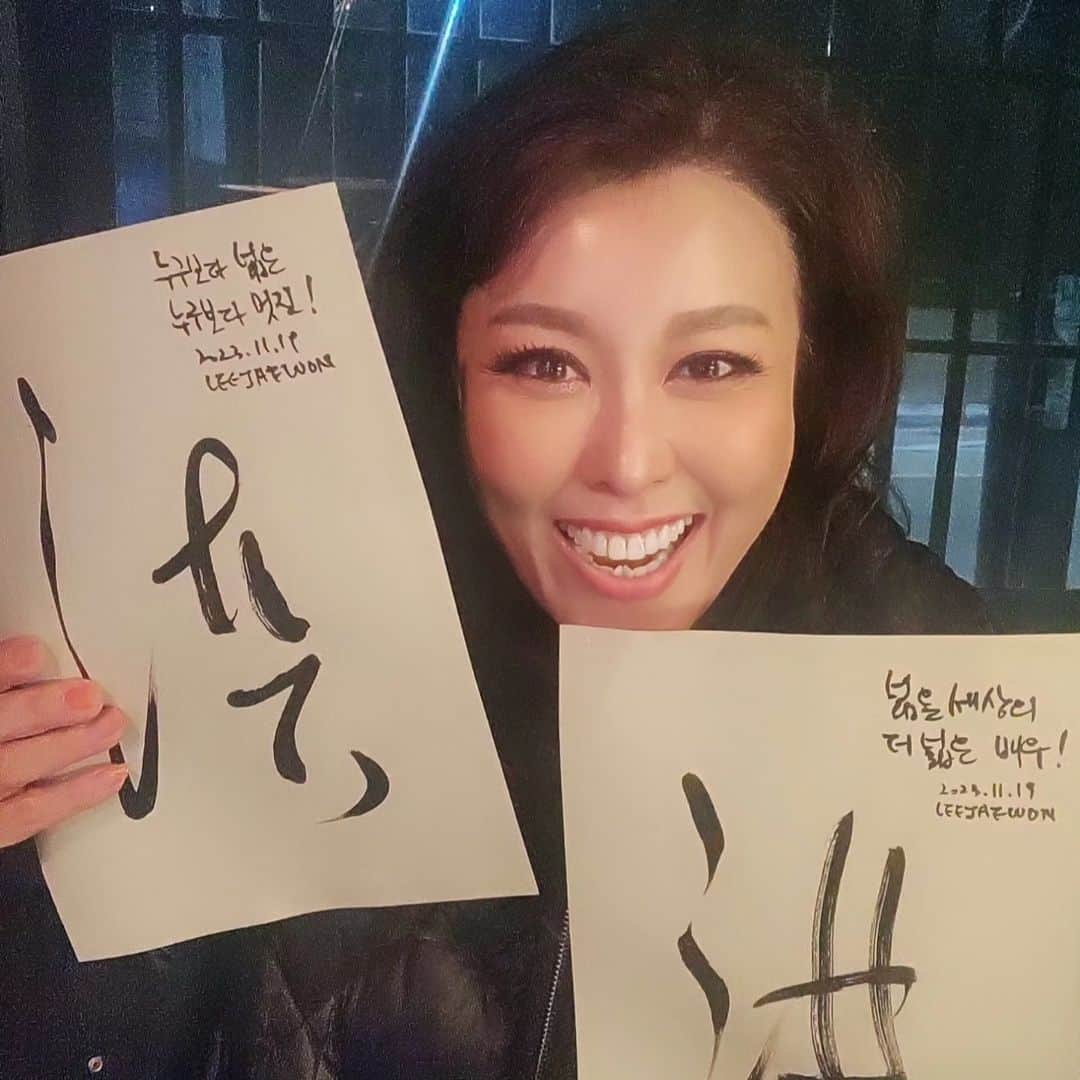 누구보다 넓은
누구보다 멋진!
2023.11.19
LEEJAEWON
넓은 세상의
더 넓은 배우!
2023.11.19
LEEJAEWON